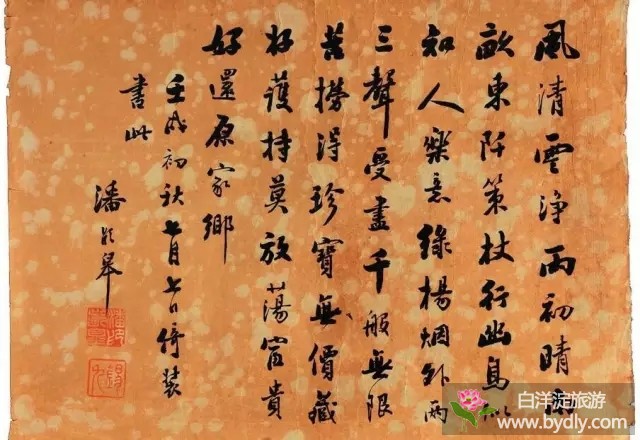 風清雲淨雨初晴南
畝東阡策杖行幽鳥似
知人樂意綠楊烟外兩
三聲受盡千般無限
苦撈得珍寶無價藏
好護持莫放蕩富貴
好還原家鄉
壬戌初秋七月七日倚裝
書此
潘齡皋
白洋淀旅游
www.bydly.com